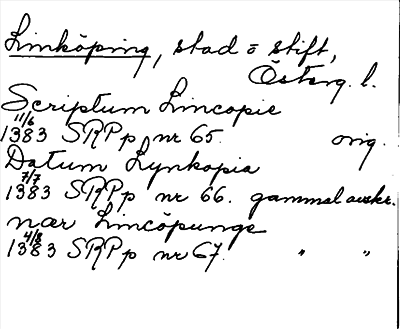 Linköping, stad = stift,
Österg. l.
Scriptum Lincopie
11/6
1383 SRPp nr 65. orig.
Datum Lynkopia
7/7
1383 SRPp nr 66. gammal avskr.
nær Lincöpunge
4/8
1383 SRPp nr 67. " "